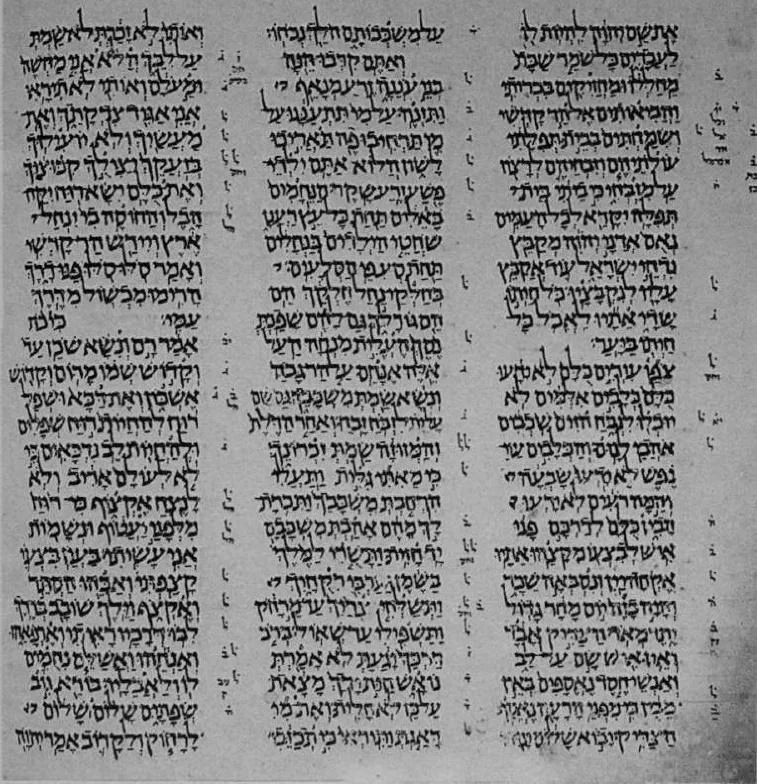 את שם יהוה להיות לו
לעבדים כל שמר שבת
מחללו ומחזיקים בבריתי
והביאותים אל הר קדשי
ושמחתים בבית תפלתי
עולתיהם וזבחיהם לרצון
על מזבחי כי ביתי בית
תפלה יקרא לכל העמים
נאם אדני יהוה מקבץ
נדחי ישראל עוד אקבץ
עליו לנקבציו כל חיתו
שדי אתיו לאכל כל
חיתו ביער
צפו עורים כלם לא ידעו
כלם כלבים אלמים לא
יוכלו לנבח הזים שכבים
אהבי לנום והכלבים עזי
נפש לא ידעו שבעה
והמה רעים לא ידעו
הבין כלם לדרכם פנו
איש לבצעו מקצהו אתיו
אקחה יין ונסבאה שכר
והיה כזה יום מחר גדול
יתר מאד הצדיק אבד
ואין איש שם על לב
ואנשי חסד נאספים באין
מבין כי מפני הרעה נאסף
הצדיק יבוא שלום ינוחו
על משכבותם הלך נכחו
ואתם קרבו הנה
בני עננה זרע מנאף
ותזנה על מי תתענגו על
מי תרחיבו פה תאריכו
לשון הלוא אתם ילדי
פשע זרע שקר הנחמים
באלים תחת כל עץ רענן
שחטי הילדים בנחלים
תחת סעפי הסלעים
בחלקי נחל חלקך הם
הם גורלך גם להם שפכת
נסך העלית מנחה העל
אלה אנחם על הר גבה
ונשא שמת משכבך גם שם
עלית לזבח זבח ואחר הדלת
והמזוזה שמת זכרונך
כי מאתי גלית ותעלי
הרחבת משכבך ותכרת
לך מהם אהבת משכבם
יד חזית ותשרי למלך
בשמן ותרבי רקחיך
ותשלחי צריך עד מרחק
ותשפילי עד שאול ברב
דרכך יגעת לא אמרת
נואש חית ידך מצאת
על כן לא חלית ואת מי
דאגת ותיראי כי תכזבי
ואותי לא זכרת לא שמת
על לבך הלא אני מחשה
ומעלם ואותי לא תיראי
אני אגיד צדקתך ואת
מעשיך ולא יועילוך
בזעקך יצילך קבוציך
ואת כלם ישא רוח יקח
הבל והחוסה בי ינחל
ארץ ויירש הר קדשי
ואמר סלו סלו פנו דרך
הרימו מכשול מדרך
עמי כי כה
אמר רם ונשא שכן עד
וקדוש שמו מרום וקדוש
אשכון ואת דכא ושפל
רוח להחיות רוח שפלים
ולהחיות לב נדכאים כי
לא לעולם אריב ולא
לנצח אקצוף כי רוח
מלפני יעטוף ונשמות
אני עשיתי בעון בצעו
קצפתי ואכהו הסתר
ואקצף וילך שובב בדרך
לבו דרכיו ראיתי וארפאהו
ואנחהו ואשלם נחמים
לו ולאבליו בורא ניב
שפתים שלום שלום
לרחוק ולקרוב אמר יהוה